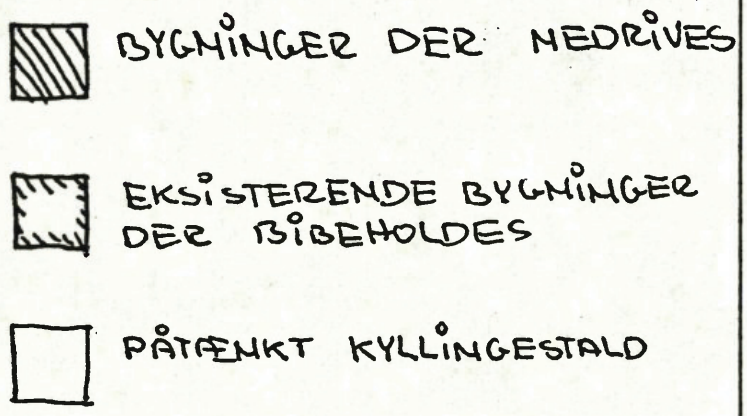 BYGNINGER DER NEDRIVES
EKSISTERENDE BYGNINGER
DER BIBEHOLDES
PÅTÆNKT KYLLINGESTALD